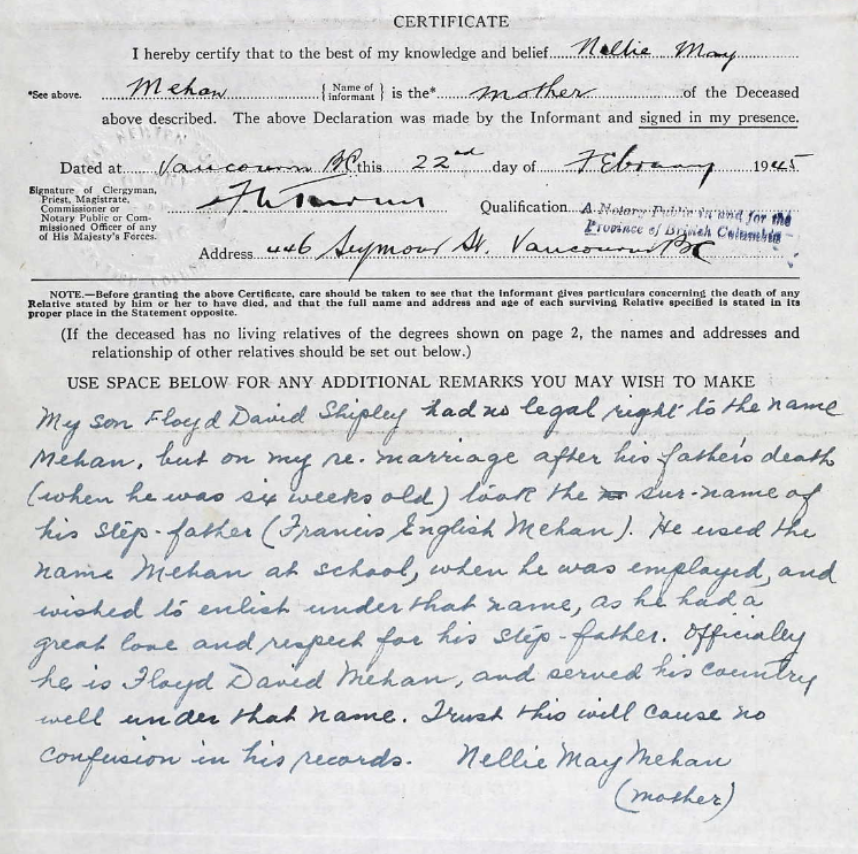 CERTIFICATE
I hereby certify that to the best of my knowledge and belief Nellie May
*See above. Mehan { Name of informant } is the* mother of the Deceased
above described. The above Declaration was made by the Informant and signed in my presence.
Dated at Vancouver BC this 22nd day of February 1945
Signature of Clergyman,
Priest, Magistrate,
Commissioner or
Notary Public or Com-
missioned Officer of any
of His Majesty's Forces.
Qualification A Notary Public in and for the
Province of British Columbia
Address 446 Seymour St. Vancouver BC
NOTE.—Before granting the above Certificate, care should be taken to see that the informant gives particulars concerning the death of any
Relative stated by him or her to have died, and that the full name and address and age of each surviving Relative specified is stated in its
proper place in the Statement opposite.
(If the deceased has no living relatives of the degrees shown on page 2, the names and addresses and
relationship of other relatives should be set out below.)
USE SPACE BELOW FOR ANY ADDITIONAL REMARKS YOU MAY WISH TO MAKE
My son Floyd David Shipley had no legal right to the name
Mehan, but on my re-marriage after his father's death
(when he was six weeks old) took the sur-name of
his step-father (Francis English Mehan). He used the
name Mehan at school, when he was employed, and
wished to enlist under that name, as he had a
great love and respect for his step-father. Officially
he is Floyd David Mehan, and served his country
well under that name. Trust this will cause no
confusion in his records. Nellie May Mehan
(mother)